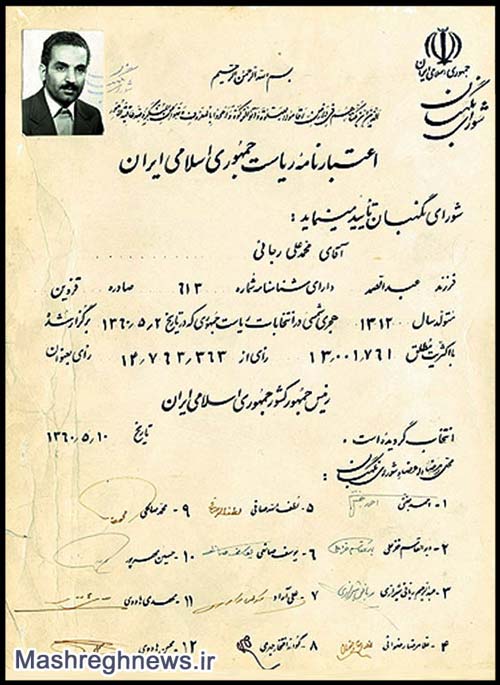 جمهوری اسلامی ایران
شورای نگهبان
بسم الله الرحمن الرحیم
اعتبارنامه ریاست جمهوری اسلامی ایران
شورای نگهبان تأیید مینماید :
آقای محمد علی رجائی
فرزند عبدالصمد دارای شناسنامه شماره ۶۱۳ صادره قزوین
متولد سال ۱۳۱۲ هجری شمسی در انتخابات ریاست جمهوری که در تاریخ ۱۳۶۰/۵/۲ برگزار شد
با اکثریت مطلق ۱۳,۰۰۱,۷۶۱ رأی از ۱۴,۷۶۳,۳۶۳ رأی بعنوان
رئیس جمهور کشور جمهوری اسلامی ایران
انتخاب گردیده است . تاریخ ۱۳۶۰/۵/۱۰
شورای نگهبان
۱ - احمد جنتی ۵ - لطف الله صافی ۹ - محمد صالحی
۲ - ابوالقاسم خزعلی ۶ - یوسف صانعی ۱۰ - حسین مهرپور
۳ - عبدالرحیم ربانی شیرازی ۷ - علی آراد ۱۱ - مهدی هادوی
۴ - غلامرضا رضوانی ۸ - گودرز افتخار جهرمی ۱۲ - محسن هادوی
Mashreghnews.ir